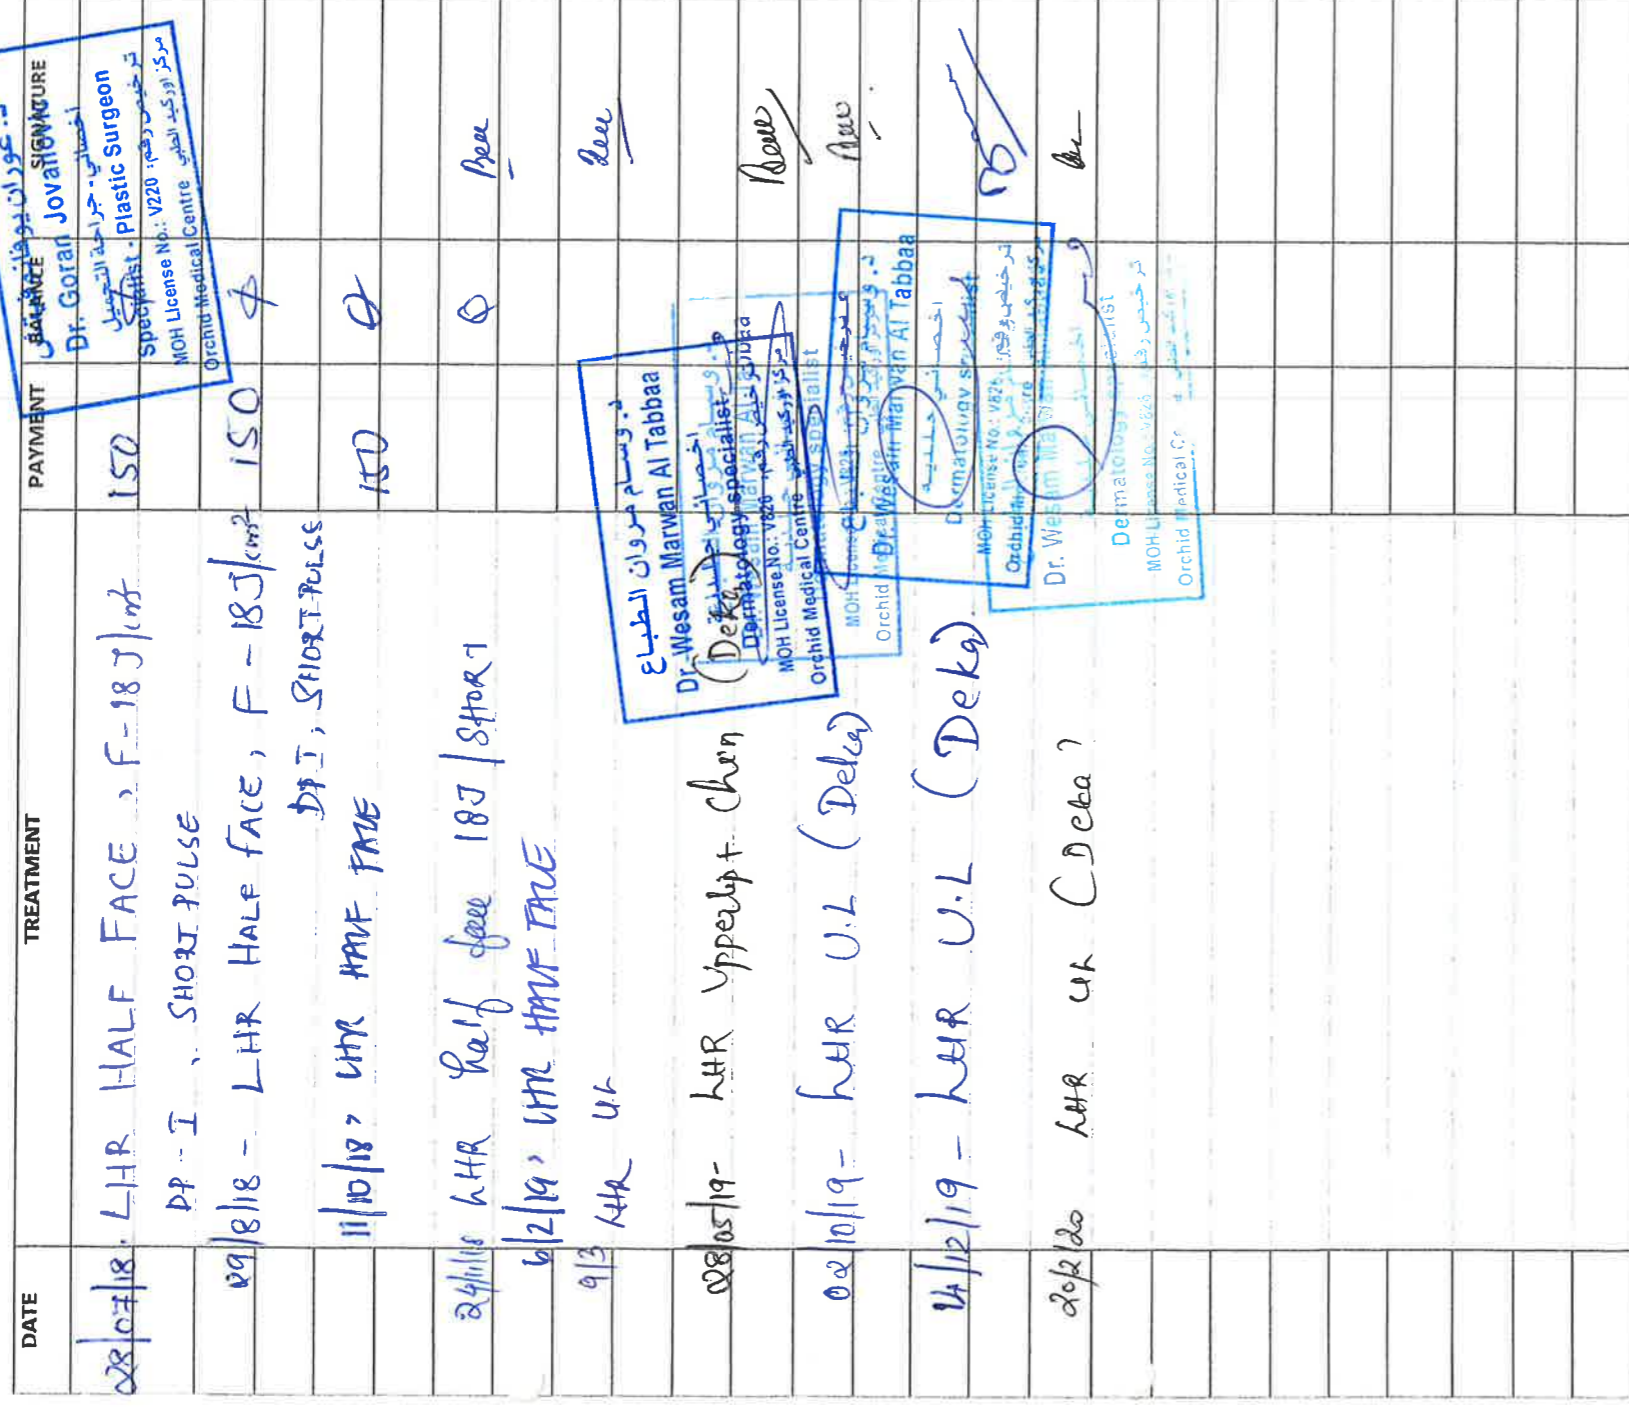 DATE TREATMENT PAYMENT BALANCE SIGNATURE
28/07/18. LHR HALF FACE, F-18J/cm² 150
DP-I, SHORT PULSE
29/8/18 - LHR HALF FACE, F-18J/cm² 150
DP I, SHORT PULSE
11/10/18, LHR HALF FACE 150
24/11/18 LHR half face 18J/SHORT
6/2/19, LHR HALF FACE
9/3 LHR UL
28/05/19- LHR Upperlip + Chin
(Deka)
02/10/19- LHR U.L (Deka)
14/12/19- LHR U.L (Deka)
20/2/20 LHR UL (Deka)
Dr. Goran Jovanovic
أخصائي - جراحة التجميل
Specialist - Plastic Surgeon
ترخيص رقم: V220
MOH License No.: V220
مركز اوركيد الطبي
Orchid Medical Centre
د. وسام مروان الطباع
Dr. Wesam Marwan Al Tabbaa
Dermatology specialist
MOH License No.: V826
Orchid Medical Centre
Dr. Wesam Marwan Al Tabbaa
اخصائي جلدية
Dermatology specialist
MOH License No.: V826
Dr. Wesam
Dermatology specialist
MOH License No.: V826
Orchid Medical